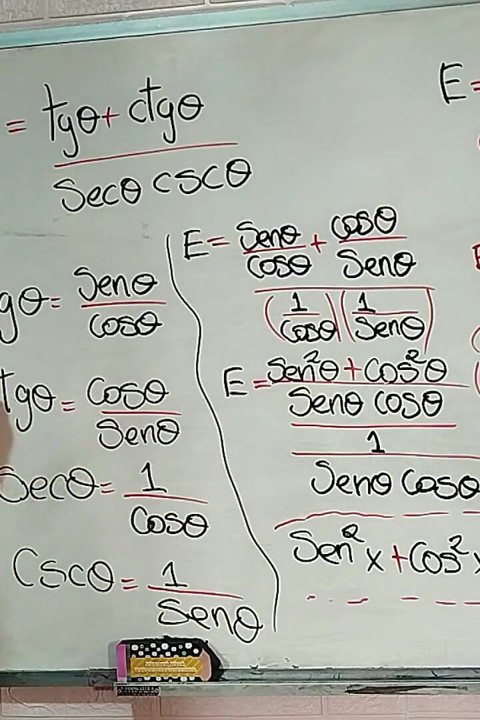 = tgθ + ctgθ
Secθ cscθ
gθ = Senθ
cosθ
tgθ = Cosθ
Senθ
Secθ = 1
Cosθ
Cscθ = 1
Senθ
E = Senθ + cosθ
cosθ Senθ
(1) (1)
Cosθ Senθ
E = Sen²θ + Cos²θ
Senθ cosθ
1
Senθ Cosθ
Sen²x + Cos²x
E =